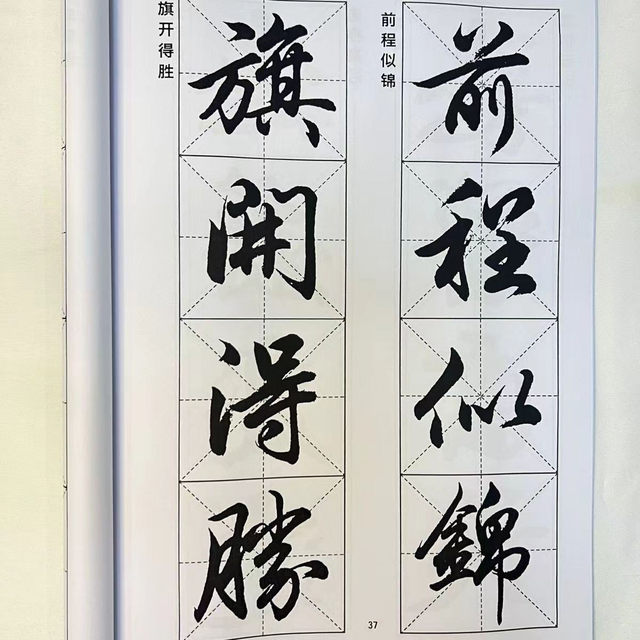 前程似锦
前程似錦
旗开得胜
旗開得勝
37